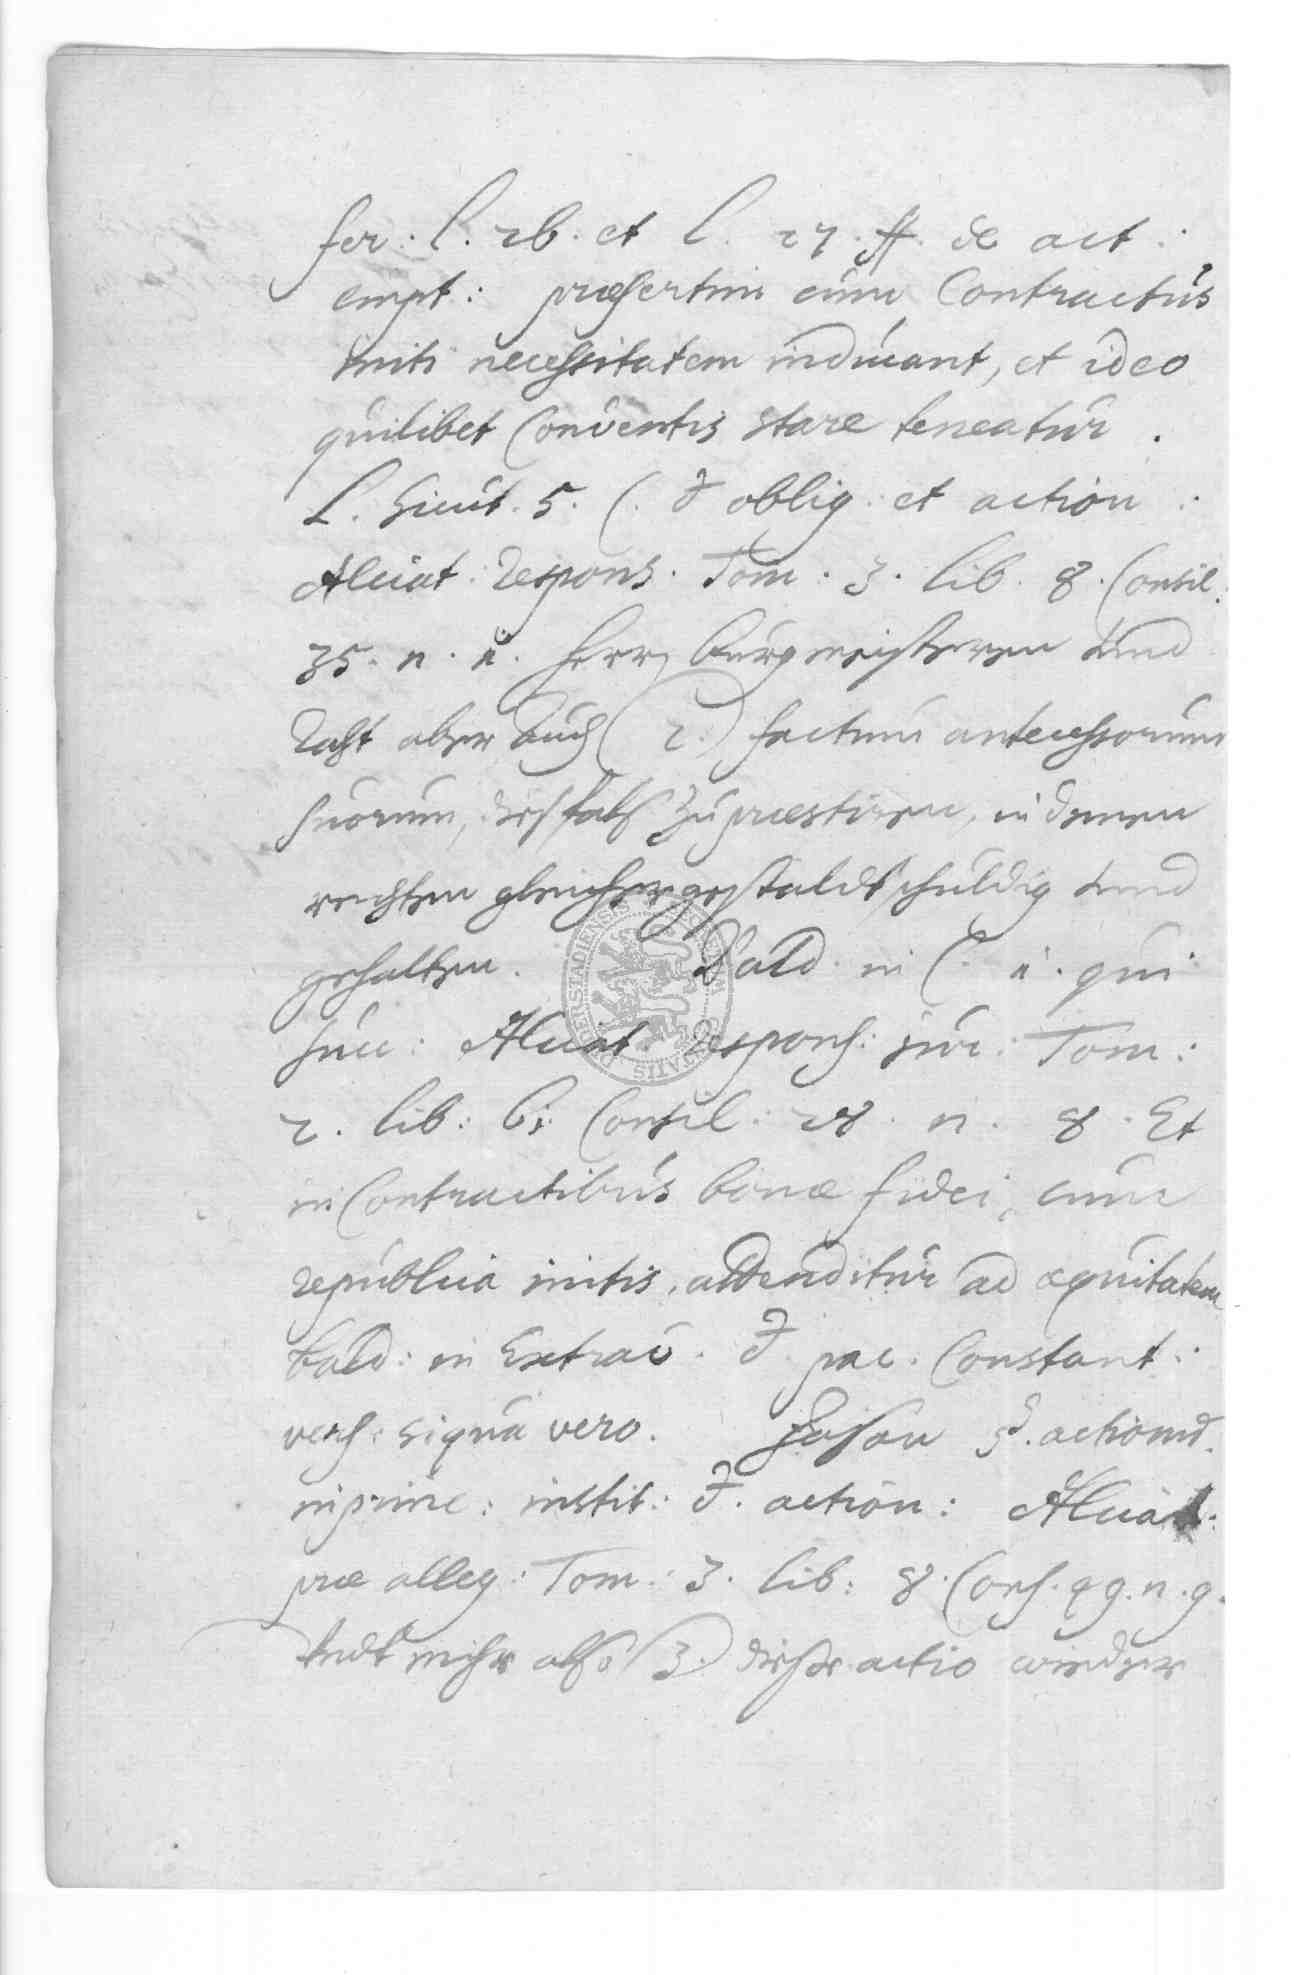 fer: l. 26. et l. 27. ff. de act:
empt: præsertim cum Contractus
initi necessitatem inducant, et ideo
quilibet Conventis stare teneatur.
L. sicut. 5. C. d oblig. et action:
Alciat. Respons. Tom. 3. lib. 8. Consil:
35. n. 1. Herrn Burgmeisteren undt
Raht aber auch (2.) factum antecessorum
suorum, dießfalß zu præstiren, in denen
rechten gleichergestaldt schuldig undt
gehalten. Bald. in C. 1. qui
succ: Alciat. Respons: jur: Tom:
2. lib: 6: Consil: 28. n. 8. Et
in Contractibus bonæ fidei, cum
republica initis, attenditur ad æquitatem
bald: in Extrav. d pac. Constant:
vers: siqua vero. Jason §. actionũ.
in princ: instit: d. action: Alciat:
præ alleg: Tom: 3. lib: 8. Cons. 49. n. 9.
undt mihr also (3.) dieße actio wieder
DUDERSTADIENSIS